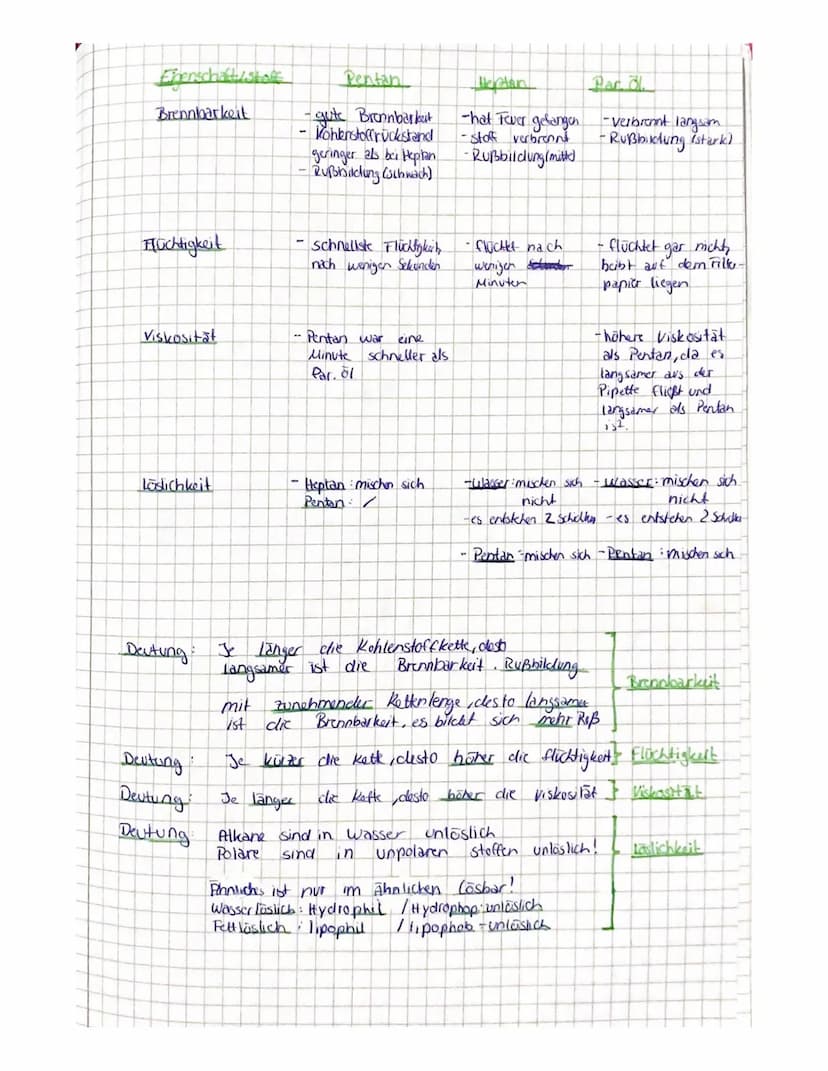 Eigenschaft/Stoff Pentan Heptan Par. Öl
Brennbarkeit
- gute Brennbarkeit
- Kohlenstoffrückstand
geringer als bei Heptan
- Rußbildung (schwach)
- hat Feuer gefangen
- stoff verbrannt
- Rußbildung (mittel)
- verbrannt langsam
- Rußbildung (stark)
Flüchtigkeit
- schnellste Flüchtigkeit,
nach wenigen Sekunden
- flüchtet nach
wenigen
Minuten
- flüchtet gar nicht,
beibt auf dem Filter-
papier liegen
Viskosität
- Pentan war eine
Minute schneller als
Par. öl
- höhere Viskosität
als Pentan, da es
langsamer aus der
Pipette fließt und
langsamer als Pentan
ist.
Löslichkeit
- Heptan: mischen sich
Pentan: /
- Wasser: mischen sich
nicht
- es entstehen 2 Schichten
- Pentan - mischen sich
- Wasser: mischen sich
nicht
- es entstehen 2 Schichten
- Pentan: mischen sich
Deutung: Je länger die Kohlenstoffkette, desto
langsamer ist die Brennbarkeit. Rußbildung
mit zunehmender Kettenlenge, desto langsamer
ist die Brennbarkeit, es bildet sich mehr Ruß
Brennbarkeit
Deutung: Je kürzer die Kette, desto höher die flüchtigkeit } Flüchtigkeit
Deutung: Je länger die Kette, desto höher die Viskosität } Viskosität
Deutung: Alkane sind in Wasser unlöslich
Polare sind in unpolaren stoffen unlöslich!
Löslichkeit
Ähnliches ist nur im ähnlichen lösbar!
Wasserlöslich: Hydrophil / Hydrophop: unlöslich
Fettlöslich: lipophil / lipophob - unlöslich